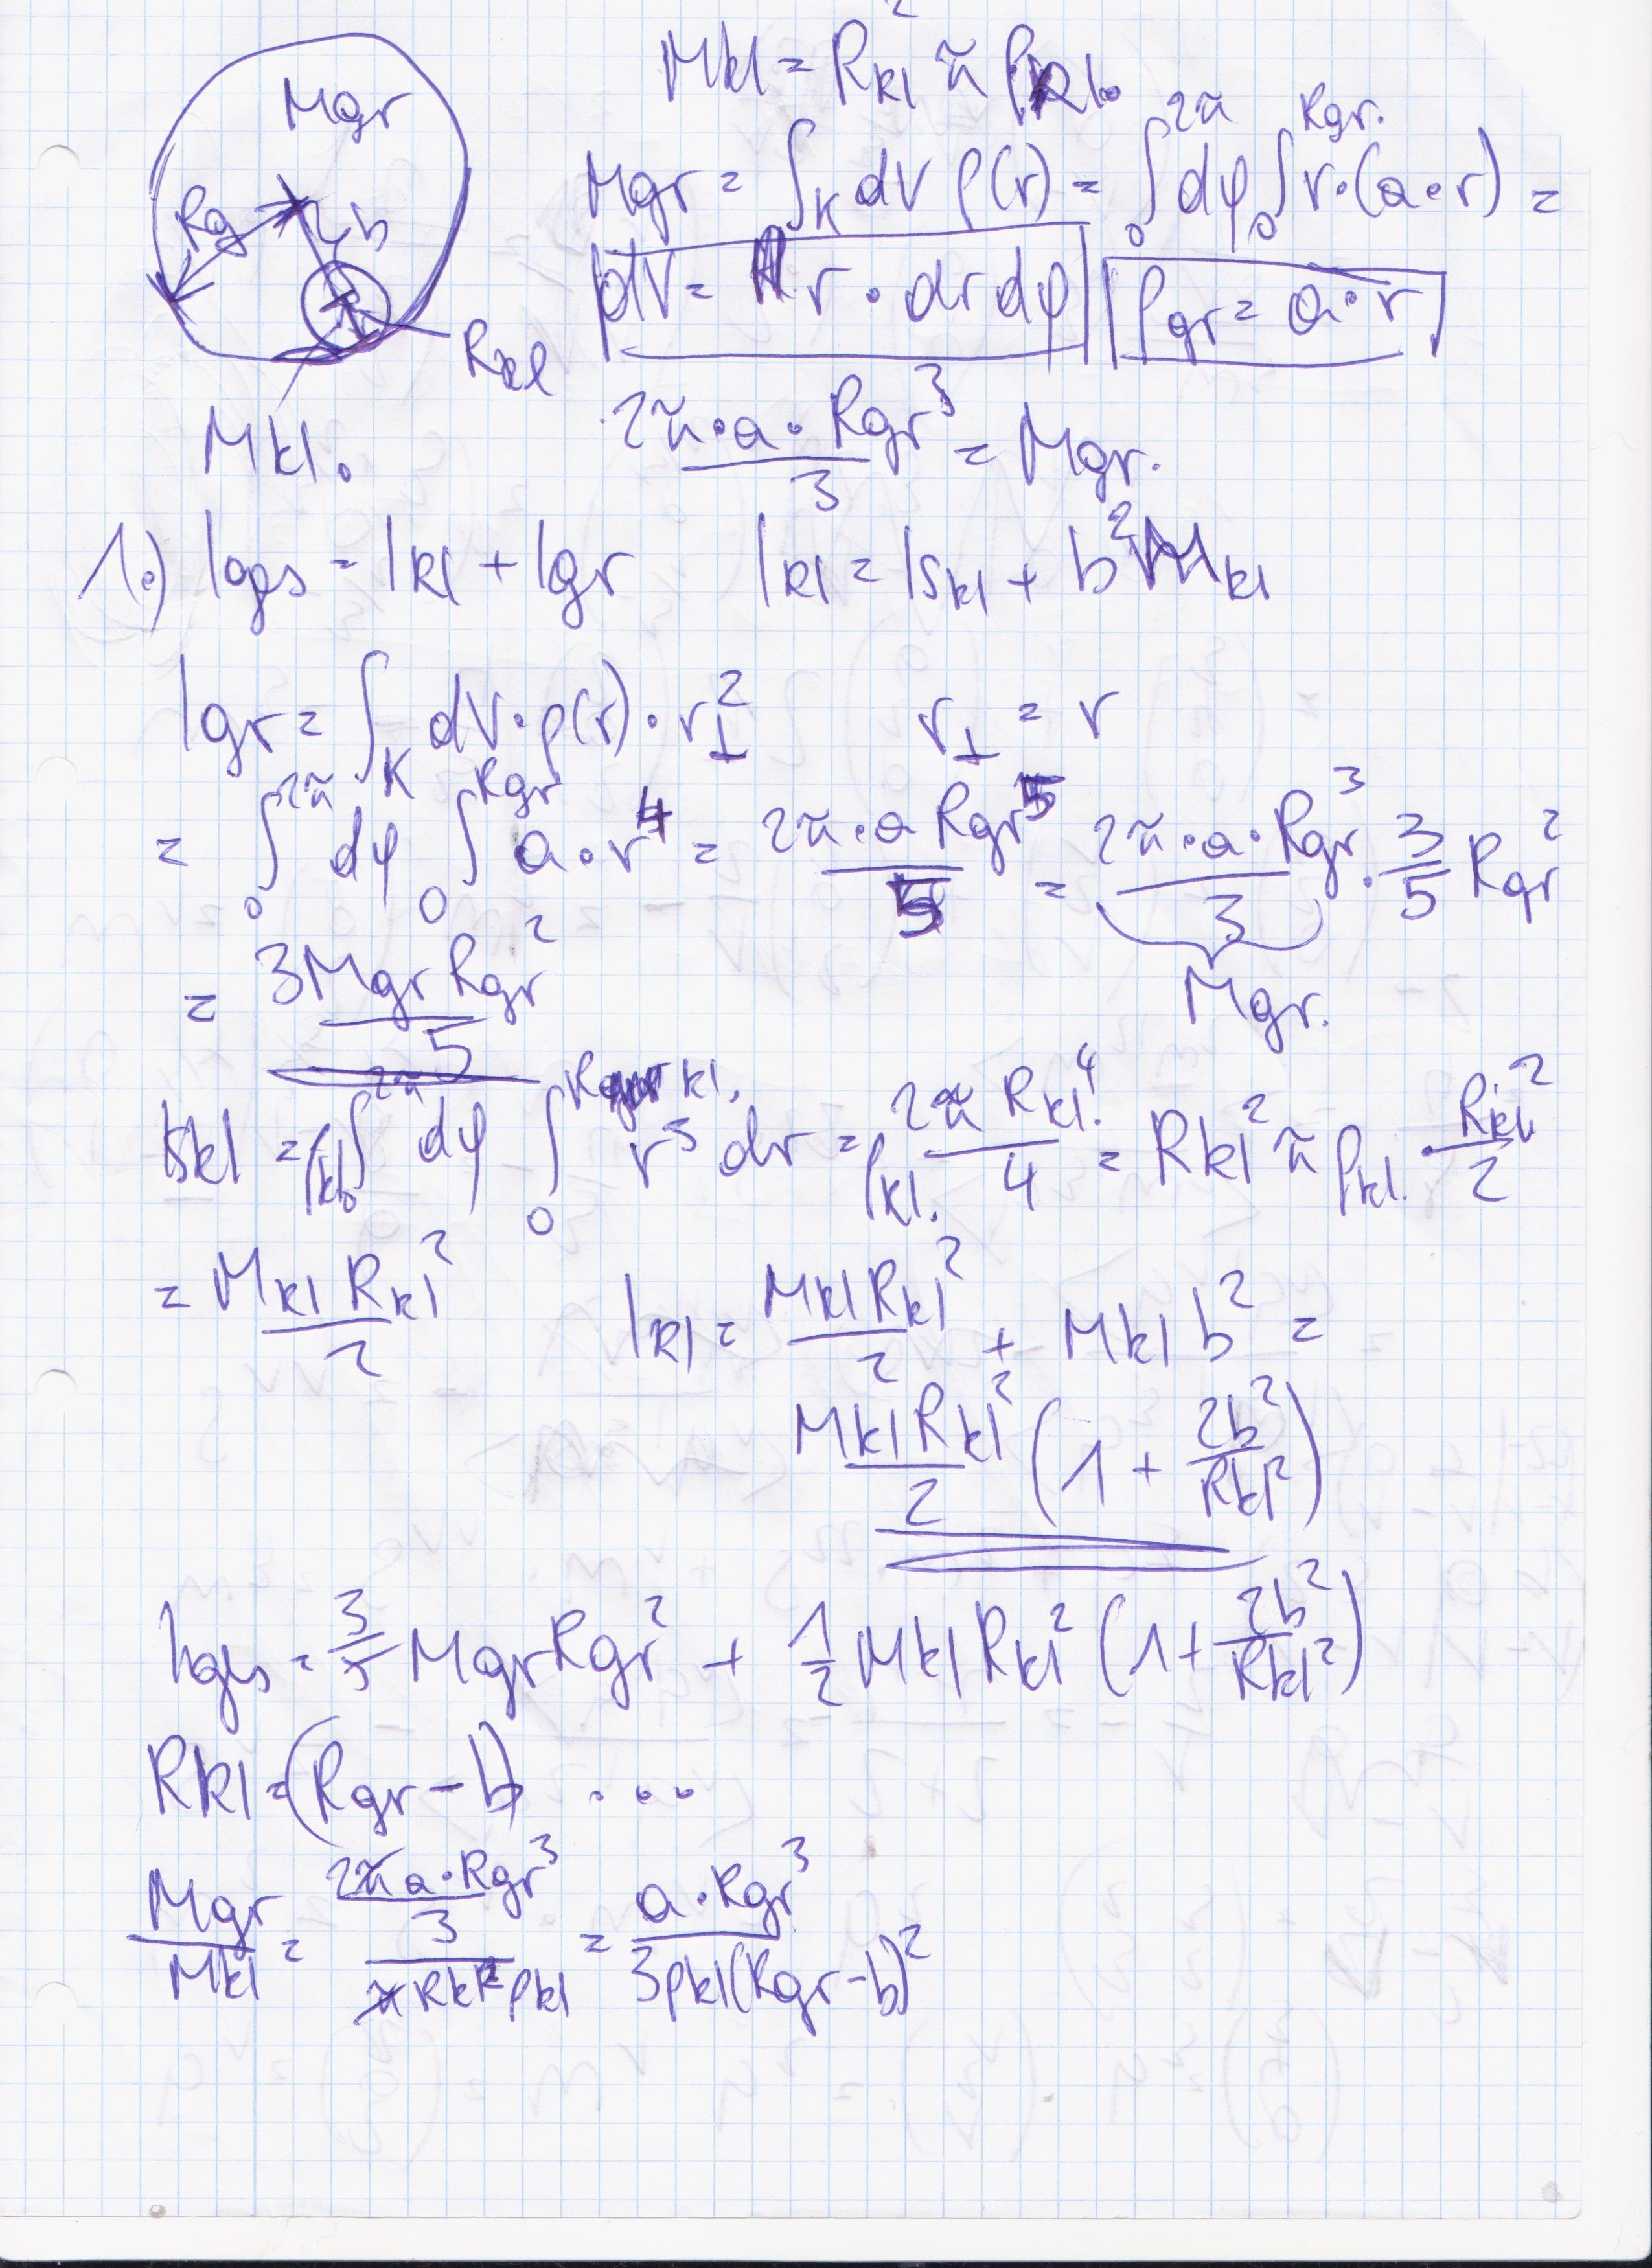 Mgr
Rg
b
Rkl
Mkl.
Mkl = Rkl² π ρkl.
Mgr = ∫_K dV ρ(r) = ∫_0^{2π} dφ ∫_0^{Rgr.} r·(a·r) =
dV = r · dr dφ
ρgr = a·r
2π·a·Rgr³/3 = Mgr.
1.) Iges = Ikl + Igr   Ikl = Iskl + b² Mkl
Igr = ∫_K dV·ρ(r)·r⊥²   r⊥ = r
= ∫_0^{2π} dφ ∫_0^{Rgr} a·r⁴ = 2π·a Rgr⁵/5 = 2π·a·Rgr³/3 · 3/5 Rgr²
Mgr.
= 3MgrRgr²/5
Iskl = ρkl ∫_0^{2π} dφ ∫_0^{Rkl.} r³ dr = ρkl. 2π Rkl.⁴/4 = Rkl² π ρkl. · Rkl²/2
= Mkl Rkl²/2   Ikl = MklRkl²/2 + Mkl b² =
MklRkl²/2 (1 + 2b²/Rkl²)
Iges = 3/5 MgrRgr² + 1/2 Mkl Rkl² (1 + 2b²/Rkl²)
Rkl = (Rgr - b) ...
Mgr/Mkl = (2πa·Rgr³/3)/(πRkl²ρkl) = a·Rgr³/3ρkl(Rgr-b)²